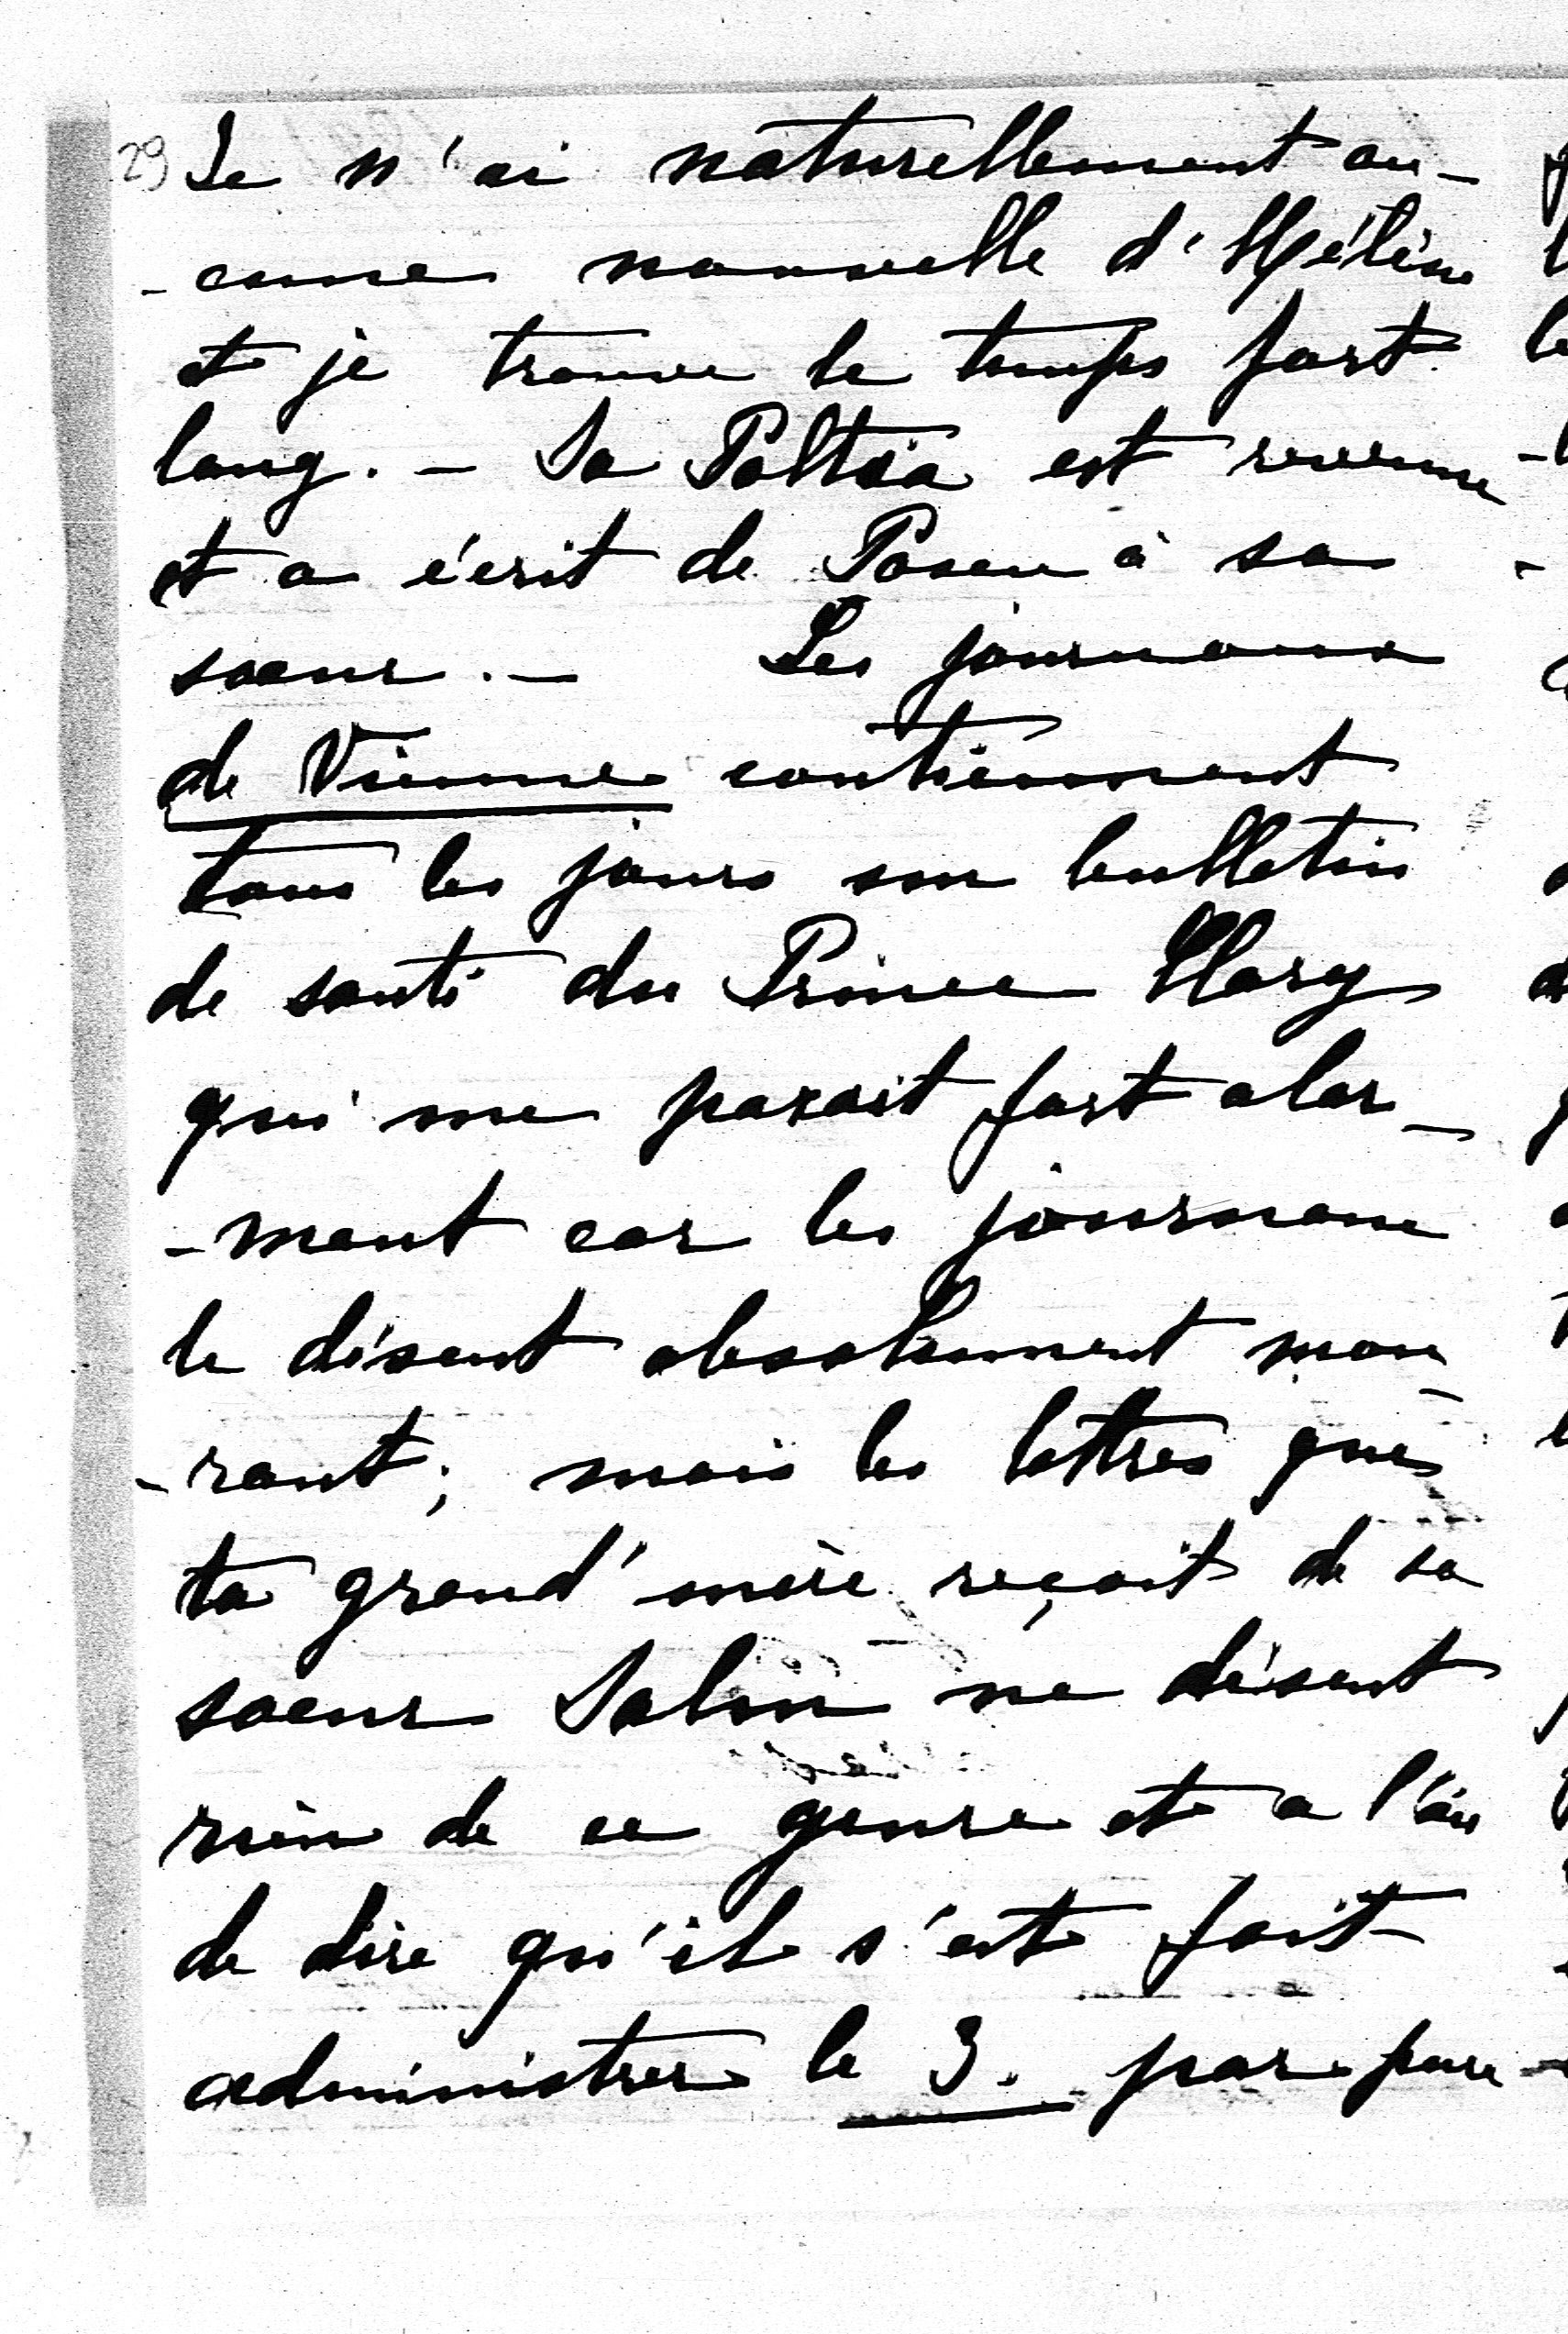 29 Je n'ai naturellement au-
-cune nouvelle d'Hélène
et je trouve le temps fort
long. - Sa est revenue
et a écrit de Posen à sa
soeur. - Les journaux
de Vienne contiennent
tous les jours son bulletin
de santé du Prince Clary
qui me parait fort alar-
-mant car les journaux
le disent absolument mou-
-rant; mais les lettres que
ta grand'mère reçoit de sa
soeur Salm ne disent
rien de ce genre et a l'air
de dire qu'il s'est fait
administrer le 3. par pure